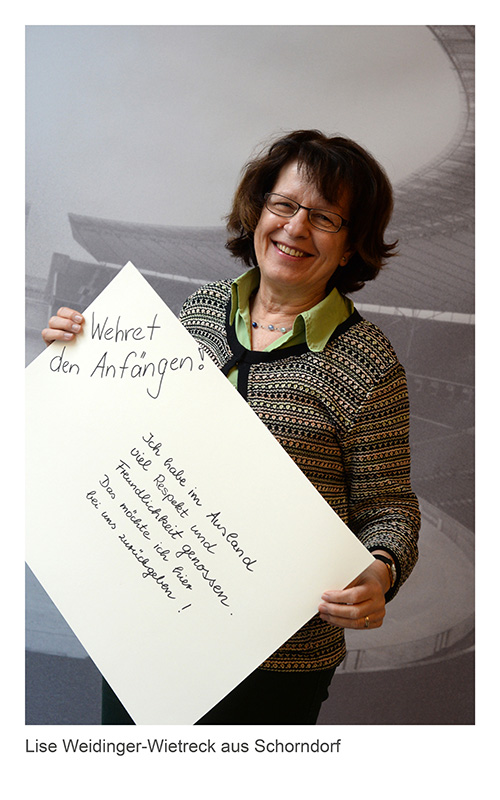 Wehret
den Anfängen!
Ich habe im Ausland
viel Respekt und
Freundlichkeit genossen.
Das möchte ich hier
bei uns zurückgeben!
Lise Weidinger-Wietreck aus Schorndorf